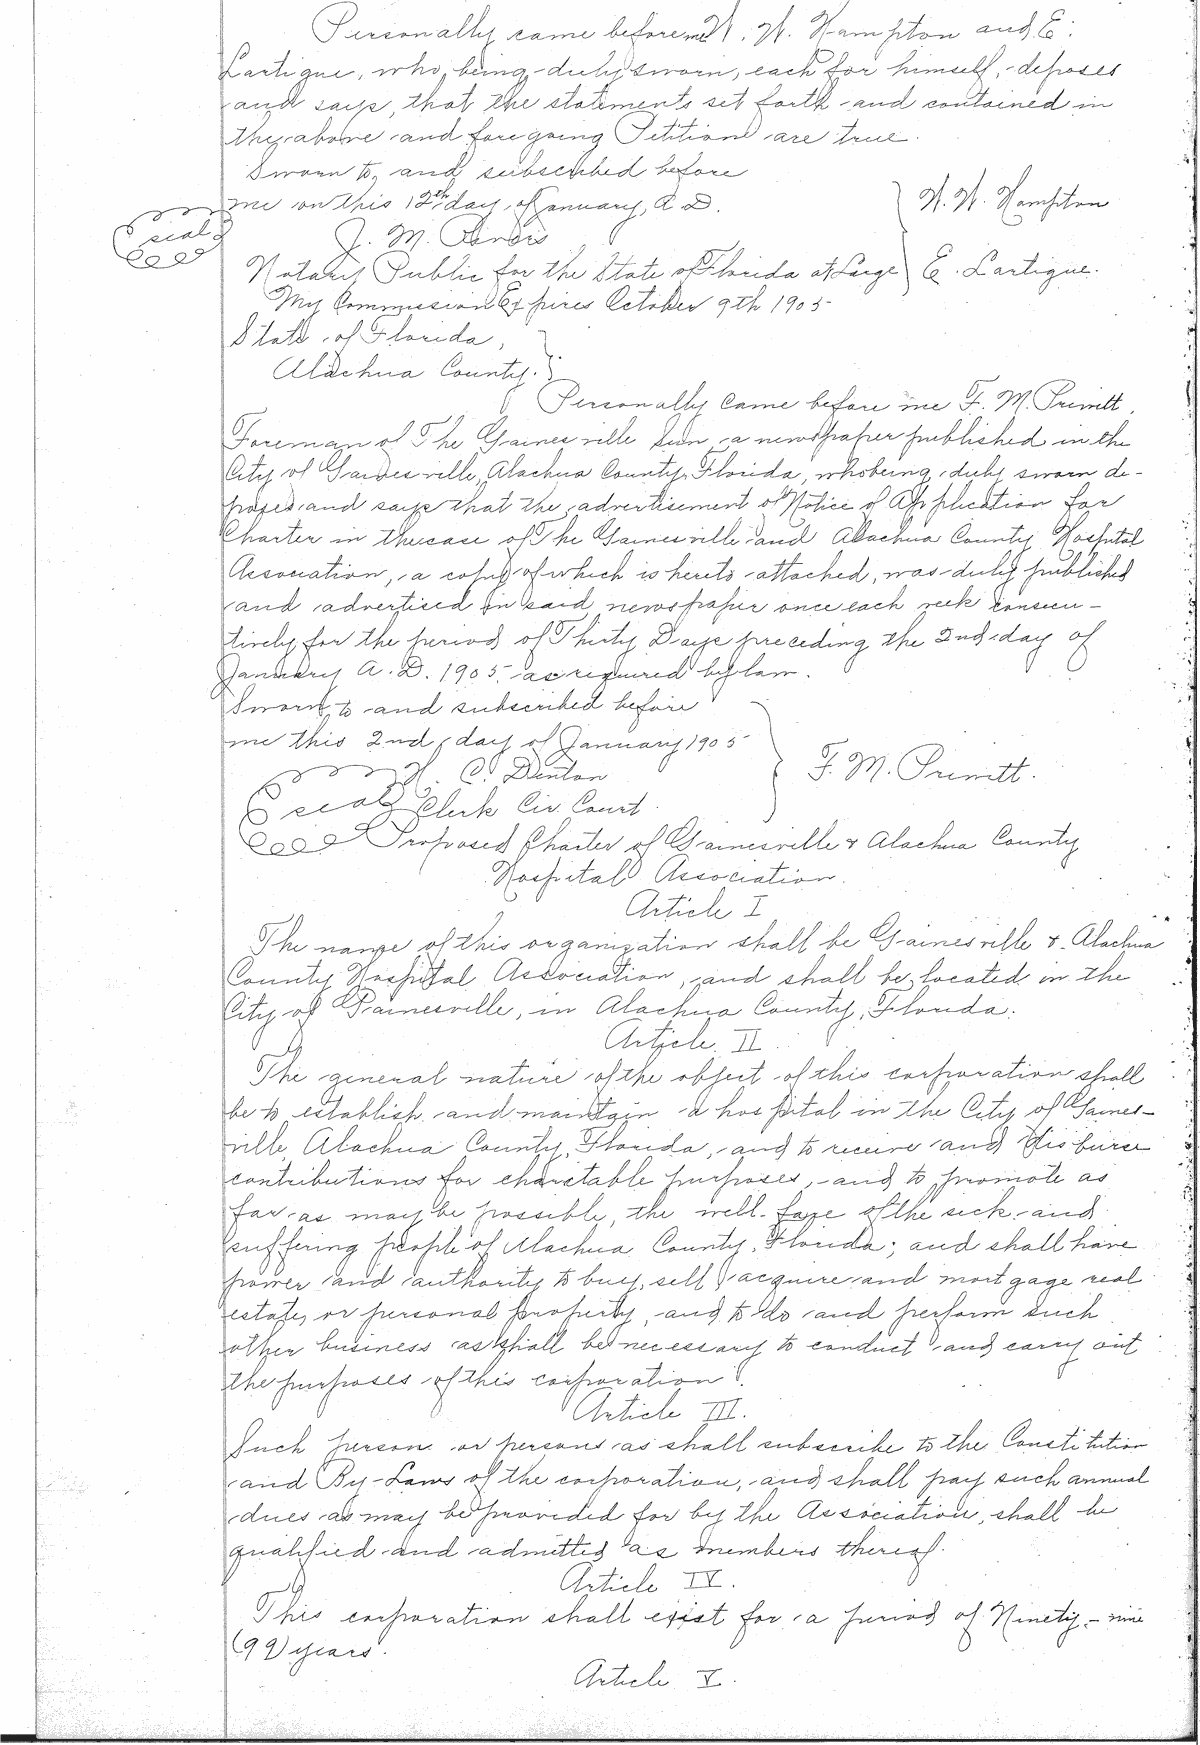 Personally came before me W. W. Hampton and E.
Lartigue, who, being duly sworn, each for himself, deposes
and says, that the statements set forth and contained in
the above and foregoing Petition are true.
Sworn to, and subscribed before
me on this 12th day of January, A. D.
W. W. Hampton
seal
J. M.
Notary Public for the State of Florida at Large
E. Lartigue.
My Commission Expires October 9th 1905
State of Florida,
Alachua County.
Personally came before me F. M. Prewitt,
Foreman of The Gainesville Sun, a newspaper published in the
City of Gainesville, Alachua County, Florida, who being duly sworn de-
poses and says that the advertisement of Notice of Application for
Charter in the case of The Gainesville and Alachua County Hospital
Association, a copy of which is hereto attached, was duly published
and advertised in said newspaper once each week consecu-
tively for the period of Thirty Days preceding the 2nd day of
January A. D. 1905 as required by law.
Sworn to and subscribed before
me this 2nd, day of January 1905
H. C. Denton
F. M. Prewitt.
seal
Clerk Cir. Court.
Proposed Charter of Gainesville & Alachua County
Hospital Association.
Article I
The name of this organization shall be Gainesville & Alachua
County Hospital Association, and shall be located in the
City of Gainesville, in Alachua County, Florida.
Article II
The general nature of the object of this corporation shall
be to establish and maintain a hospital in the City of Gaines-
ville, Alachua County, Florida, and to receive and disburse
contributions for charitable purposes, and to promote as
far as may be possible, the well-fare of the sick and
suffering people of Alachua County, Florida; and shall have
power and authority to buy, sell, acquire and mortgage real
estate, or personal property, and to do and perform such
other business as shall be necessary to conduct and carry out
the purposes of this corporation.
Article III.
Such person or persons as shall subscribe to the Constitution
and By-Laws of the corporation, and shall pay such annual
dues as may be provided for by the Association, shall be
qualified and admitted as members thereof.
Article IV.
This corporation shall exist for a period of Ninety-nine
(99) years.
Article V.